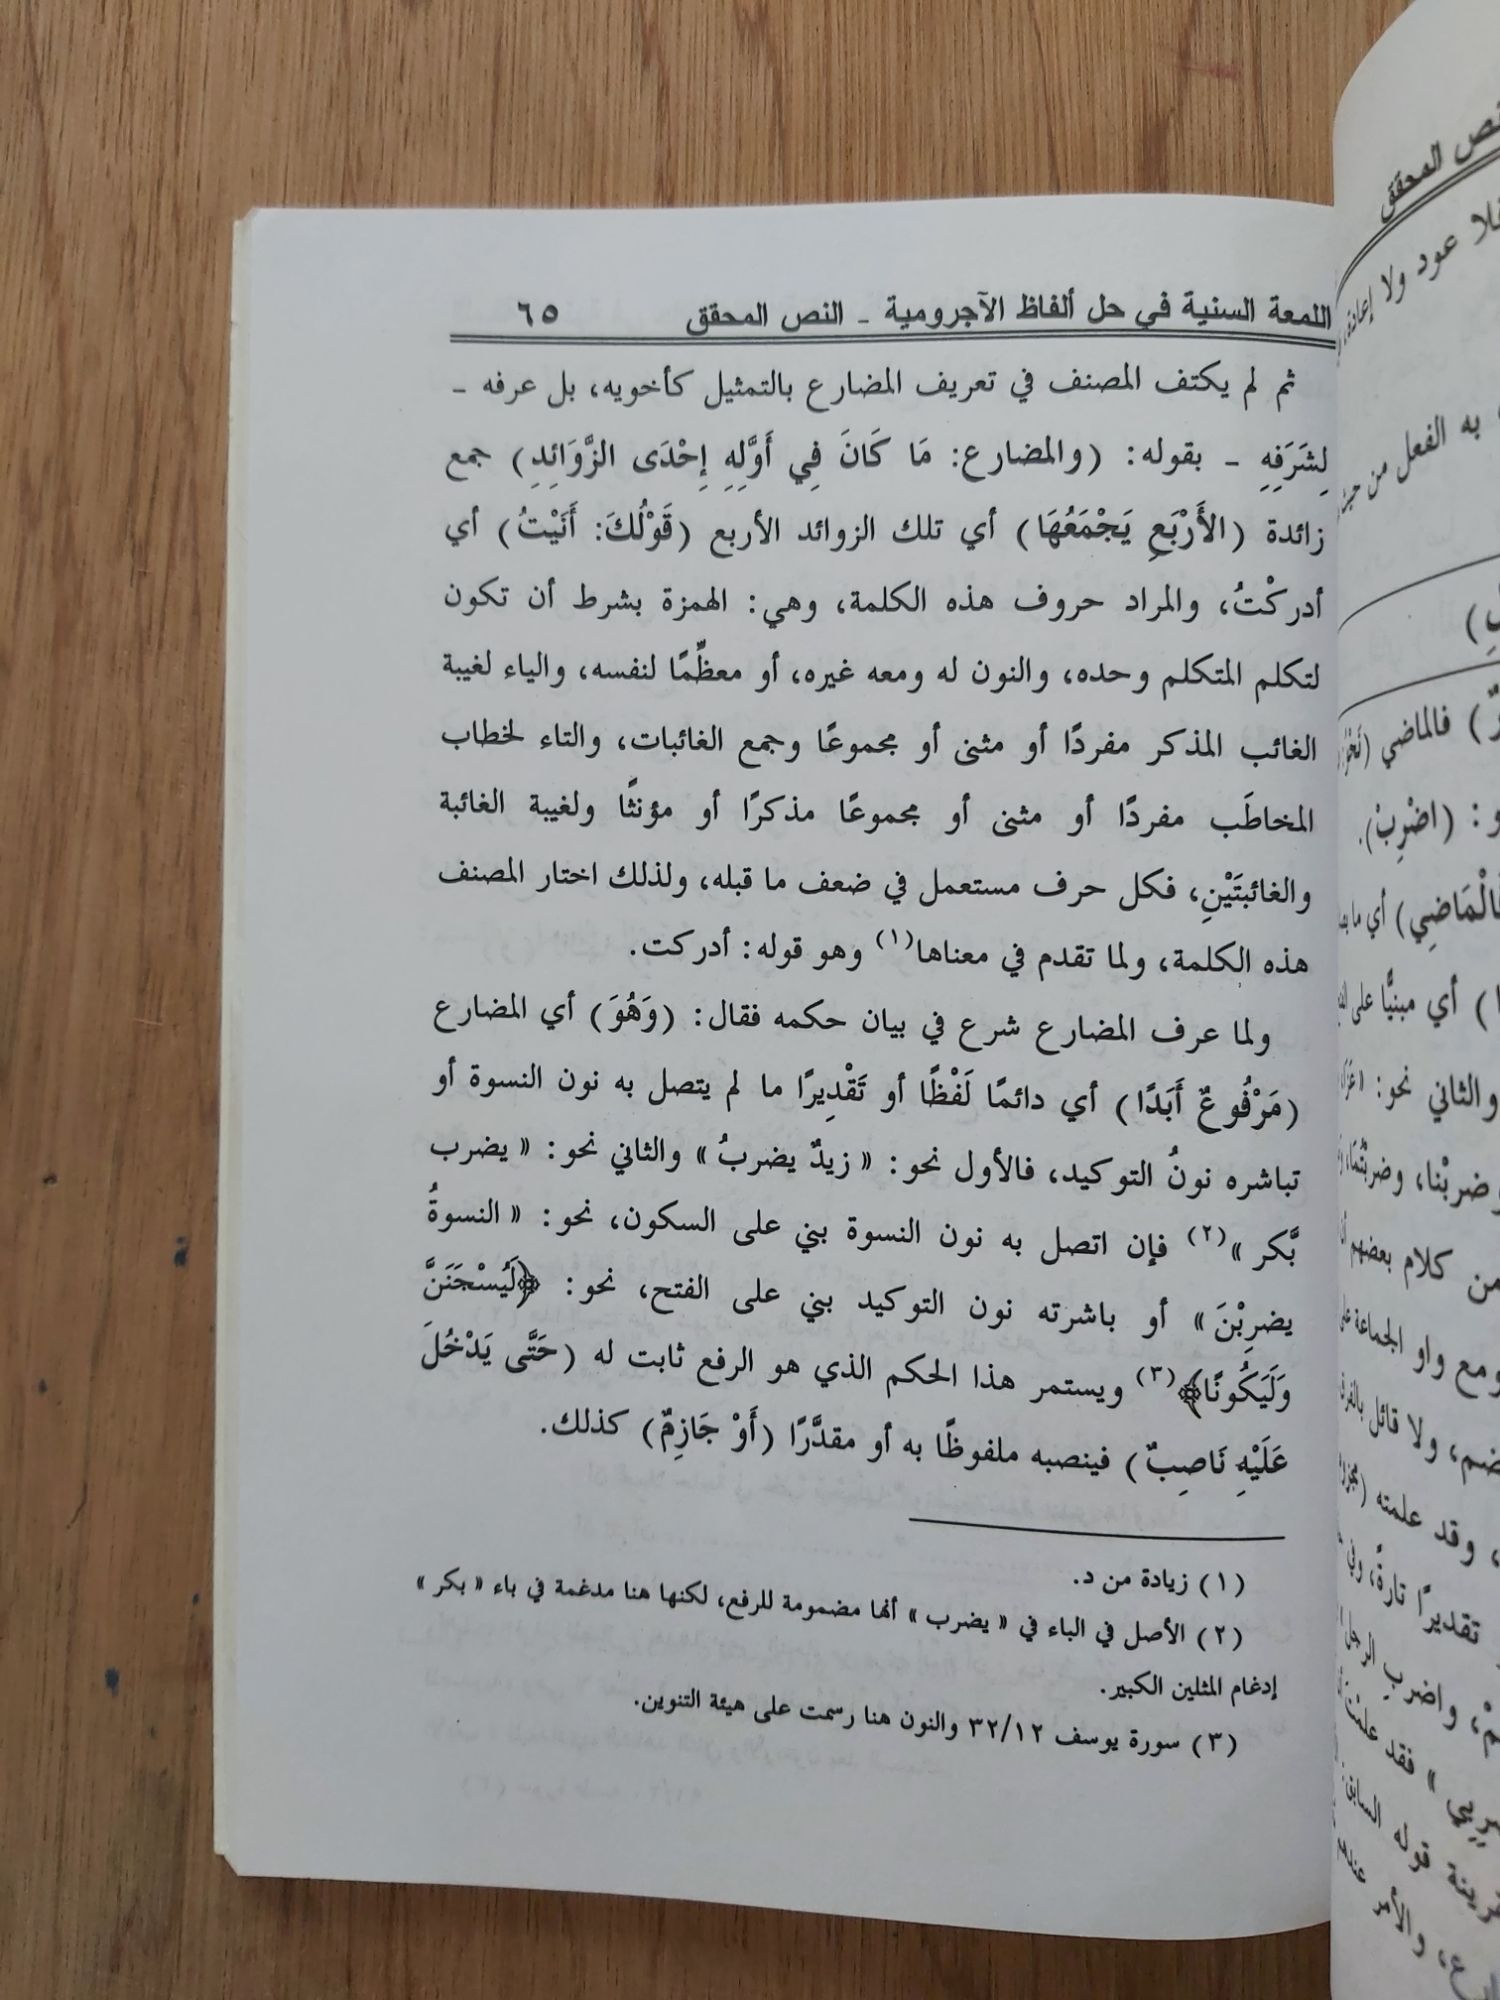 اللمعة السنية في حل ألفاظ الآجرومية - النص المحقق ٦٥
ثم لم يكتف المصنف في تعريف المضارع بالتمثيل كأخويه، بل عرفه -
لِشَرَفِهِ - بقوله: (والمضارع: مَا كَانَ فِي أَوَّلِهِ إِحْدَى الزَّوَائِدِ) جمع
زائدة (الأَرْبَعِ يَجْمَعُهَا) أي تلك الزوائد الأربع (قَوْلُكَ: أَنَيْتُ) أي
أدركْتُ، والمراد حروف هذه الكلمة، وهي: الهمزة بشرط أن تكون
لتكلم المتكلم وحده، والنون له ومعه غيره، أو معظِّمًا لنفسه، والياء لغيبة
الغائب المذكر مفردًا أو مثنى أو مجموعًا وجمع الغائبات، والتاء لخطاب
المخاطَب مفردًا أو مثنى أو مجموعًا مذكرًا أو مؤنثًا ولغيبة الغائبة
والغائبتَيْنِ، فكل حرف مستعمل في ضعف ما قبله، ولذلك اختار المصنف
هذه الكلمة، ولما تقدم في معناها(١) وهو قوله: أدركت.
ولما عرف المضارع شرع في بيان حكمه فقال: (وَهُوَ) أي المضارع
(مَرْفُوعٌ أَبَدًا) أي دائمًا لَفْظًا أو تَقْدِيرًا ما لم يتصل به نون النسوة أو
تباشره نونُ التوكيد، فالأول نحو: « زيدٌ يضربُ » والثاني نحو: « يضرب
بَّكر »(٢) فإن اتصل به نون النسوة بني على السكون، نحو: « النسوةُ
يضرِبْنَ » أو باشرته نون التوكيد بني على الفتح، نحو: ﴿لَيُسْجَنَنَّ
وَلَيَكُونًا﴾(٣) ويستمر هذا الحكم الذي هو الرفع ثابت له (حَتَّى يَدْخُلَ
عَلَيْهِ نَاصِبٌ) فينصبه ملفوظًا به أو مقدَّرًا (أَوْ جَازِمٌ) كذلك.
(١) زيادة من د.
(٢) الأصل في الباء في « يضرب » أنها مضمومة للرفع، لكنها هنا مدغمة في باء « بكر »
إدغام المثلين الكبير.
(٣) سورة يوسف ٣٢/١٢ والنون هنا رسمت على هيئة التنوين.
المحقق
عود ولا إعادة
به الفعل من
فالماضي
(اضْرِبْ).
أي
أي مبنيًّا على
والثاني نحو:
وضربْنا،
من كلام بعضهم
ومع واو الجماعة
ولا قائل
وقد علمته
تقديرًا تارةً، وفي
واضربِ الرجل
فقد علمت
قوله السابق
والأمر